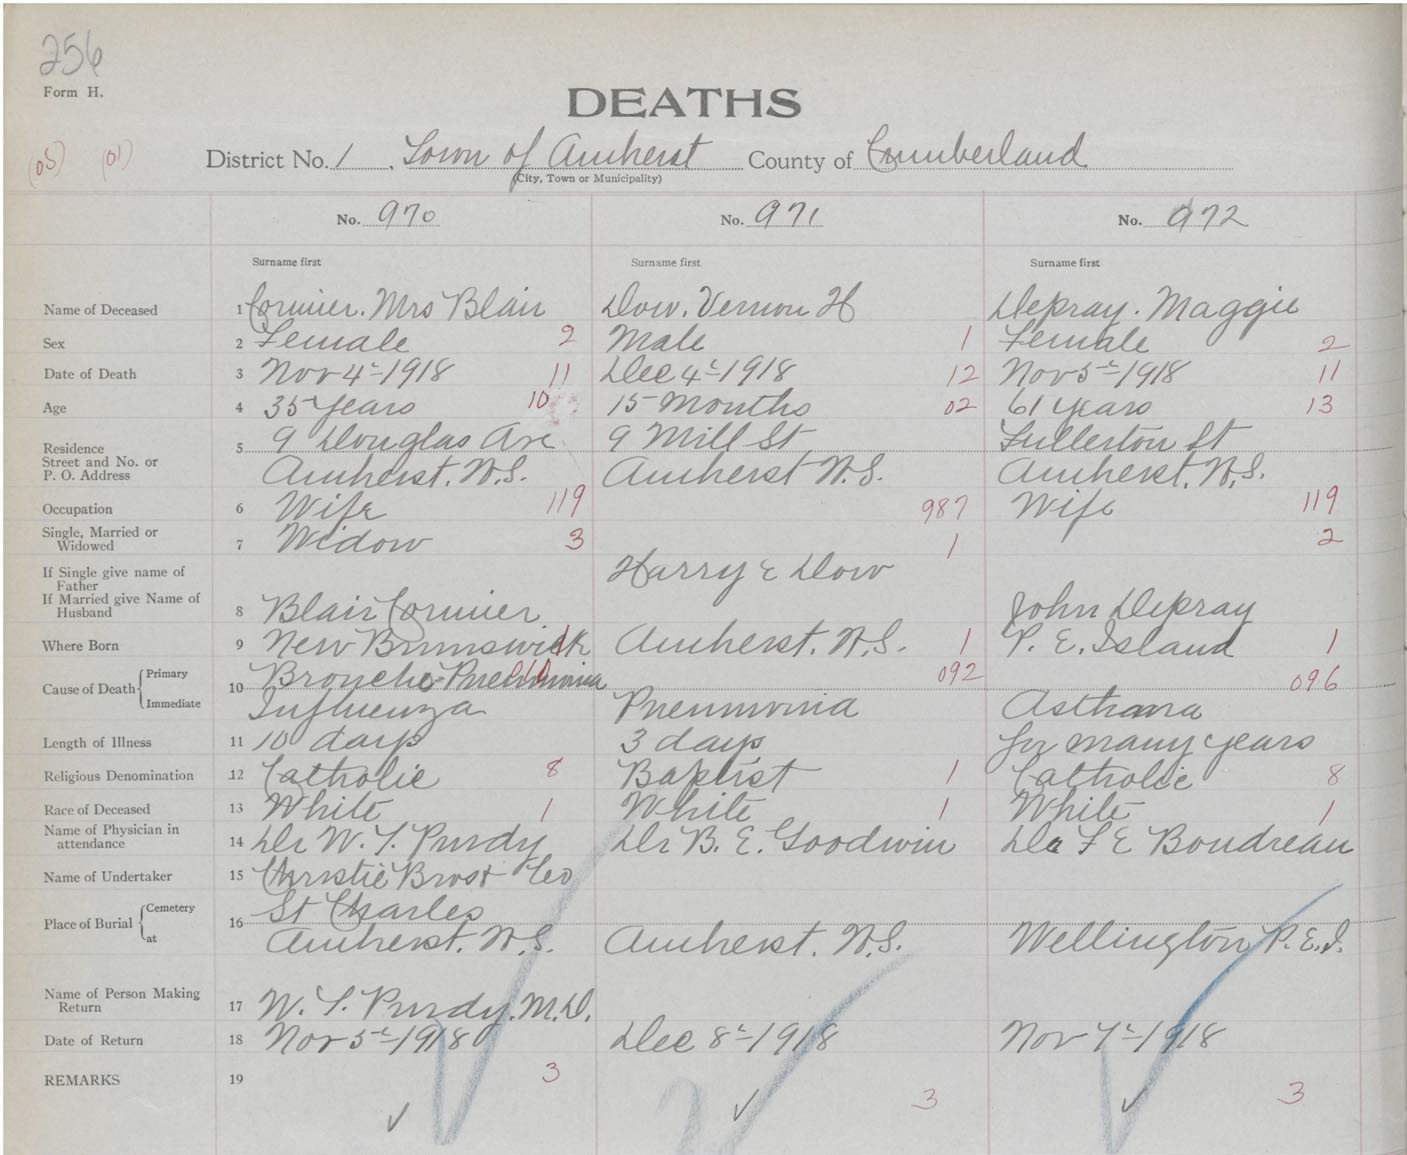 256
Form H.
DEATHS
(05) (01) District No. 1, Town of Amherst County of Cumberland
(City, Town or Municipality)
No. 970 No. 971 No. 972
Surname first Surname first Surname first
Name of Deceased 1 Cormier. Mrs Blair Dow, Vernon H Depray. Maggie
Sex 2 Female 2 Male 1 Female 2
Date of Death 3 Nov 4-1918 11 Dec 4-1918 12 Nov 5-1918 11
Age 4 35 Years 10 15 Months 02 61 Years 13
Residence 5 9 Douglas Ave 9 Mill St Fullerton St
Street and No. or
P. O. Address Amherst. N.S. Amherst N.S. Amherst, N.S.
Occupation 6 Wife 119 987 Wife 119
Single, Married or
Widowed 7 Widow 3 1 2
If Single give name of
Father Harry E Dow
If Married give Name of
Husband 8 Blair Cormier John Depray
Where Born 9 New Brunswick 1 Amherst. N.S. 1 P. E. Island 1
Cause of Death Primary 10 Broncho-Pneumonia 010 092 096
Immediate Influenza Pneumonia Asthma
Length of Illness 11 10 days 3 days for many years
Religious Denomination 12 Catholic 8 Baptist 1 Catholic 8
Race of Deceased 13 White 1 White 1 White 1
Name of Physician in
attendance 14 Dr W. T. Purdy Dr B. E. Goodwin Dr F E Boudreau
Name of Undertaker 15 Christie Bros & Co
Place of Burial Cemetery 16 St Charles
at Amherst. N.S. Amherst. N.S. Wellington P.E.I.
Name of Person Making
Return 17 W. T. Purdy. M.D.
Date of Return 18 Nov 5-1918 Dec 8-1918 Nov 7-1918
REMARKS 19 3 3 3